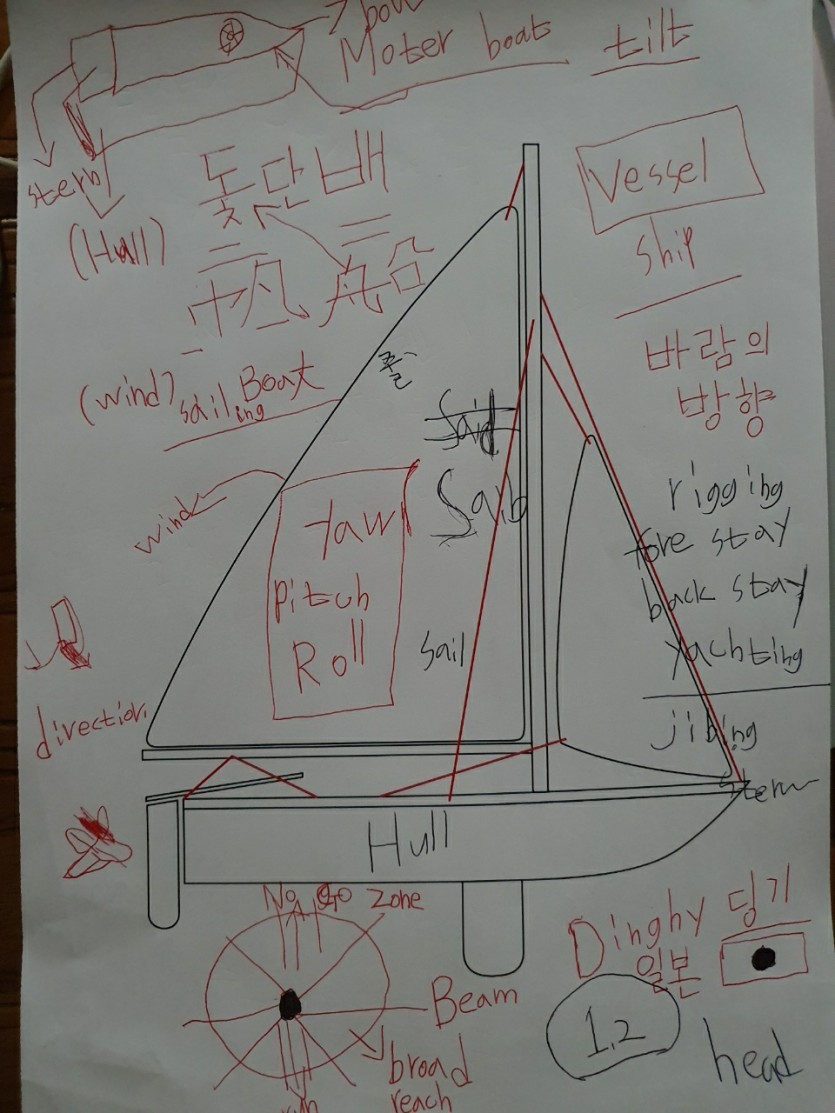 bow
Moter boats
tilt
stern
(Hull)
돛단배
Vessel
ship
(wind) sailing Boat
바람의
방향
Said
Sail
rigging
fore stay
back stay
yachting
wind
Yaw
Pitch
Roll
sail
direction
jibing
stern
Hull
No go zone
Dinghy 딩기
일본
Beam
1,2
broad
reach
head